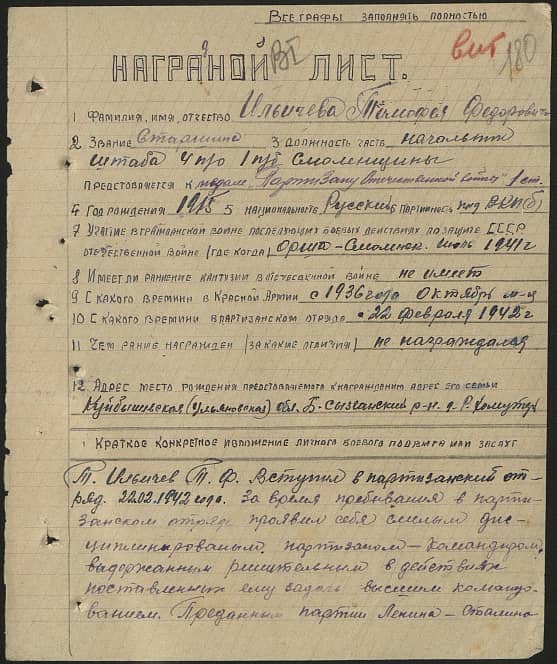 Все графы заполнять полностью
ВІ
180
НАГРАДНОЙ ЛИСТ.
1 Фамилия, имя, отчество Ильичева Тимофея Федоровича
2 Звание Старшина 3 Должность часть начальник
штаба 4 п/о 1 Смоленщины
Предстовляется к медале "Партизану Отечественной войны" 1 ст.
4 Год рождения 1915 5 Национальность Русский 6 Партийность ВКП(б)
7 Участие в гражданской войне последующих боевых действиях по защите СССР
отечественной войне (где когда) Орша – Смоленск. июль 1941 г
8 Имеет ли ранение кантузии в отечесвенной войне не имеет
9 С какого времини в Красной Армии с 1936 года октябрь м-ц
10 С какого времини в партизанском отряде с 22 февраля 1942 г
11 Чем ранее награжден (за какие отличия) не награждался
12 Адрес место рождения предстовляемого к награждению адрес его семьи
Куйбышевская (Ульяновская) обл. Б-Сызганский р-н. д. Р. Хомутерь
1 Краткое конкретное изложение личного боевого подвига или заслуг
Т. Ильичев Т. Ф. Вступил в партизанский от-
ряд. 22.02.1942 года. За время пребывания в парти-
занском отряде проявил себя смелым дис-
циплинированым, партизаном – командиром,
выдержанным решительным в действиях
поставленных ему задачь высшим командо-
ванием. Преданным партии Ленина – Сталина